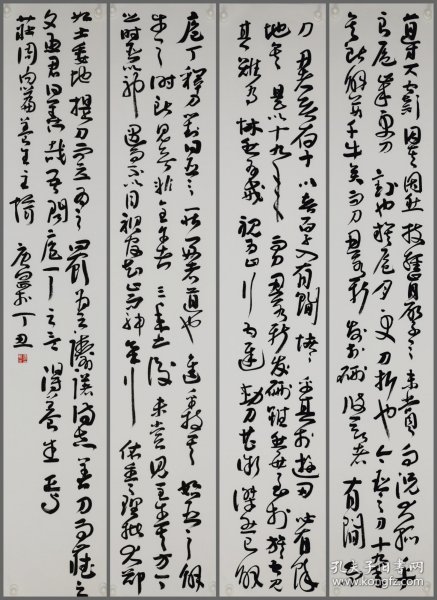 導大窾因其固然技經肯綮之未嘗而況大軱乎
良庖歲更刀割也族庖月更刀折也今臣之刀十九年
矣所解數千牛矣而刀刃若新發於硎彼節者有間而
刀刃者無厚以無厚入有間恢恢乎其於遊刃必有餘
地矣是以十九年而刀刃若新發於硎雖然每至於族吾見
其難為怵然為戒視為止行為遲動刀甚微謋然已解
庖丁釋刀對曰臣之所好者道也進乎技矣始臣之解
牛之時所見無非全牛者三年之後未嘗見全牛也方今
之時臣以神遇而不以目視官知止而神欲行依乎天理批大郤
如土委地提刀而立為之四顧為之躊躇滿志善刀而藏之
文惠君曰善哉吾聞庖丁之言得養生焉
莊周內篇養生主摘 丁丑
孔夫子旧书网
www.kongfz.com